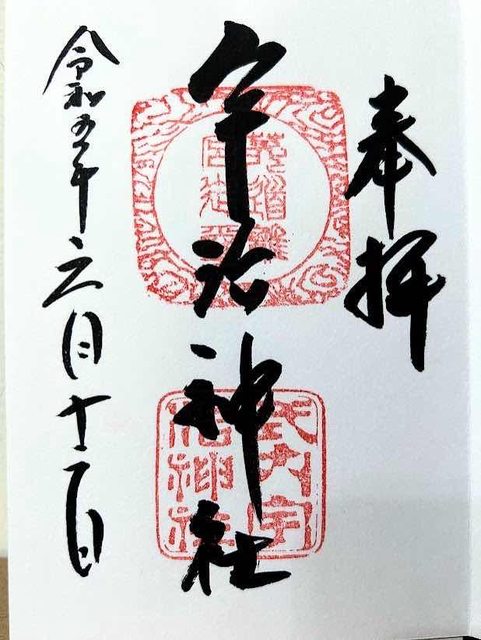 奉拝
宇治神社
令和五年六月十一日
式内宇
治神社